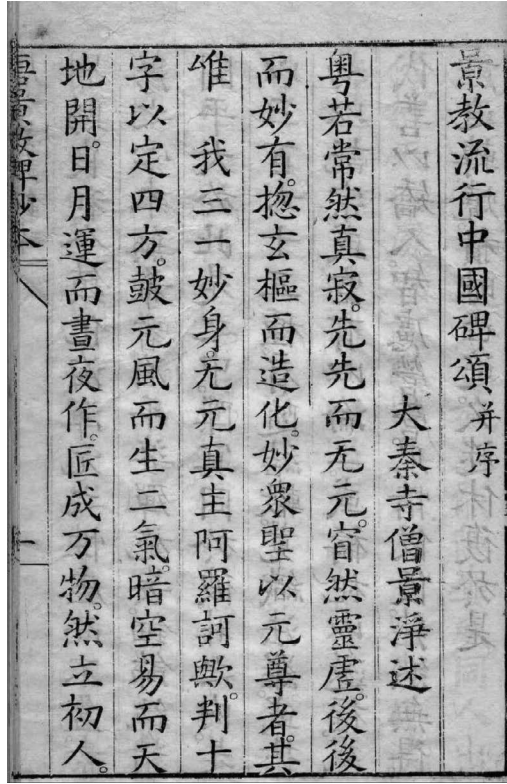 景教流行中國碑頌并序
大秦寺僧景淨述
粵若常然真寂。先先而无元。窅然靈虛。後後
而妙有。惣玄樞而造化。妙衆聖以元尊者。其
唯　我三一妙身。无元真主阿羅訶歟。判十
字以定四方。皷元風而生二氣。暗空易而天
地開。日月運而晝夜作。匠成万物。然立初人。